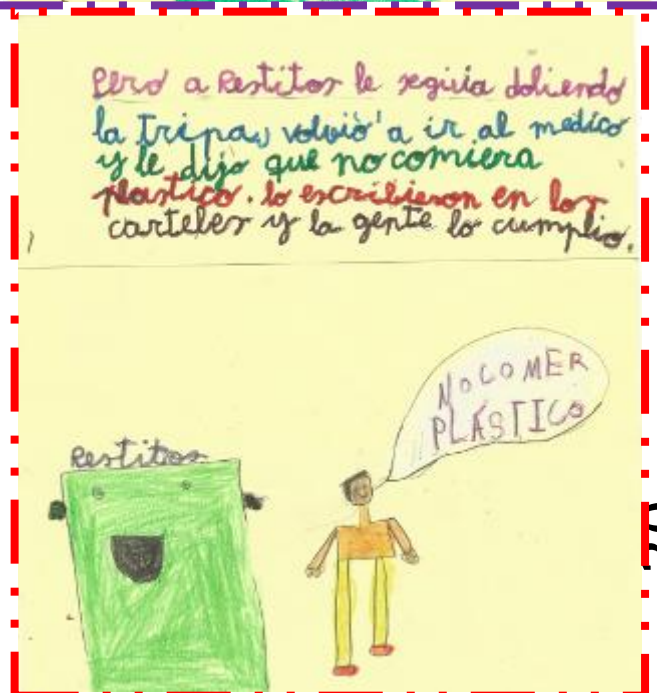 Pero a Restitos le seguia doliendo
la tripa, volvió a ir al medico
y le dijo que no comiera
plastico. lo escribieron en los
carteles y la gente lo cumplio.
NO COMER
PLÁSTICO
Restitos